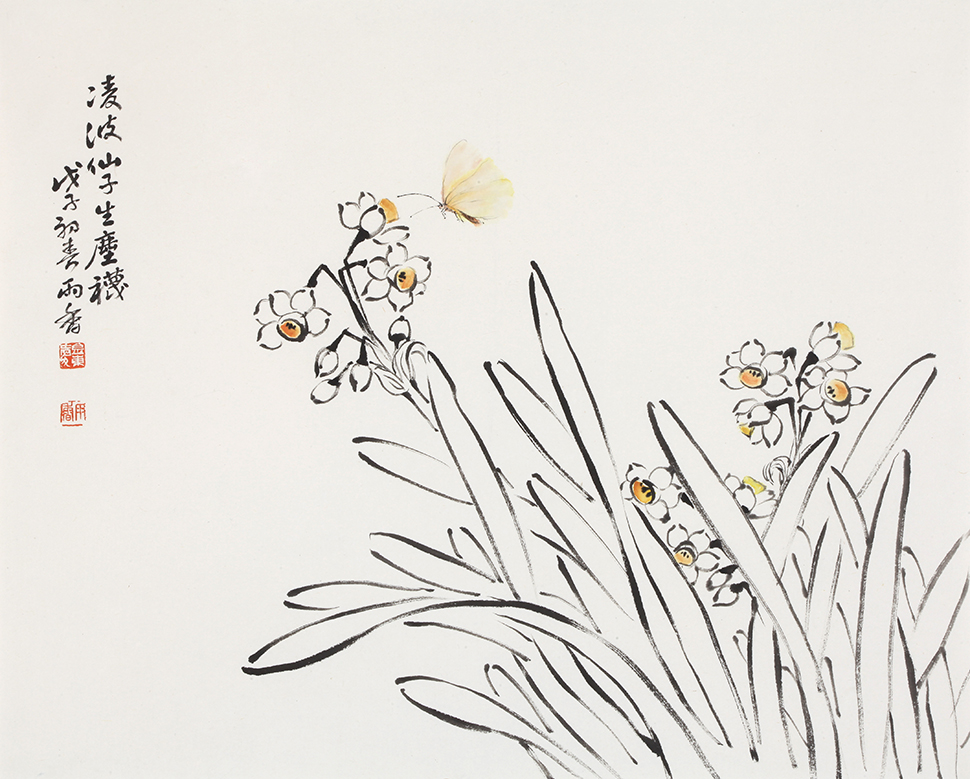 凌波仙子生塵襪
戊子初春雨香